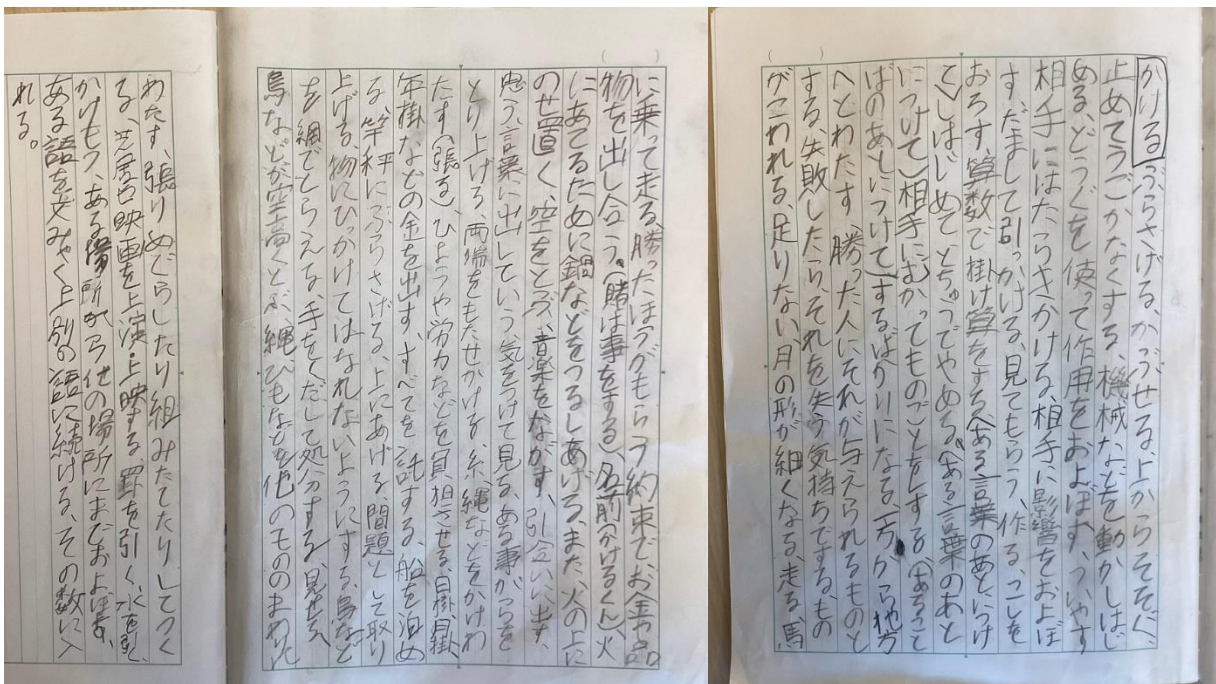 かける ぶらさげる、かぶせる、上からそそぐ、
止めてうごかなくする、機械などを動かしはじ
める、どうぐを使って作用をおよぼす、ついやす
相手にはたらきかける、相手に影響をおよぼ
す、だまして引っかける、見てもらう、作る、こしを
おろす、算数で掛け算をする(ある言葉のあとにつけ
て)しはじめて、とちゅうでやめる。(ある言葉のあと
につけて)相手にむかってものごとをする(あること
ばのあとにつけて)するばかりになる、一方から他方
へとわたす、勝った人にそれが与えられるものと
する、失敗したらそれを失う気持ちでする、もの
がこわれる、足りない、月の形が細くなる、走る、馬
に乗って走る、勝ったほうがもらう約束でお金や品
物を出し合う。(賭け事をする)、名前(かけるくん)、火
にあてるために鍋などをつるしあげる、また、火の上に
のせ置く、空をとぶ、音楽をながす、引合いに出す、
思う、言葉に出していう、気をつけて見る、ある事がらを
とり上げる、両端をもたせかける、糸、縄などをかけわ
たす(張る)、ひようや労力などを負担させる、日掛、月掛、
年掛などの金を出す、すべてを託する、船を泊め
る、竿秤にぶらさげる、上にあげる、問題として取り
上げる、物にひっかけてはなれないようにする、鳥など
を網でとらえる、手をくだして処分する、見せる、
鳥などが空高くとぶ、縄ひもなどを他のもののまわりに
わたす、張りめぐらしたり組みたてたりしてつく
る、芝居や映画を上演・上映する、罪を引く、水を引く、
かけもつ、ある場所から他の場所にまでおよぼす、
ある語を文みゃく上別の語に続ける、その数に入
れる。